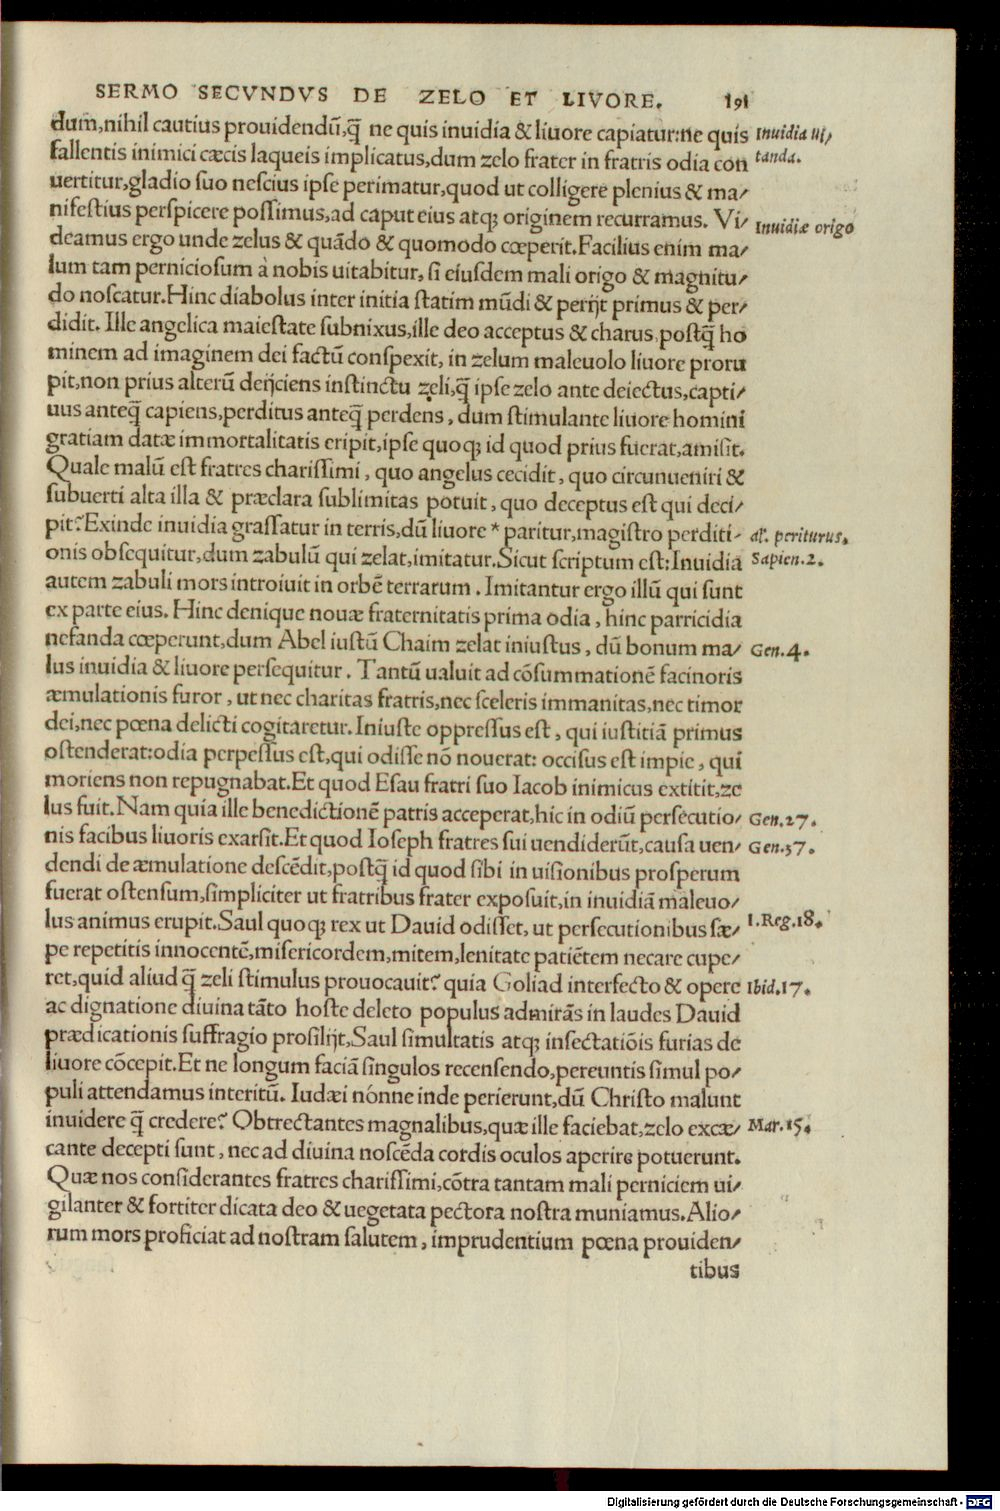 SERMO SECVNDVS DE ZELO ET LIVORE. 191
dum,nihil cautius prouidendū,q̄ ne quis inuidia & liuore capiatur:ne quis
Inuidia ui/
fallentis inimici cæcis laqueis implicatus,dum zelo frater in fratris odia con
tanda.
uertitur,gladio suo nescius ipse perimatur,quod ut colligere plenius & ma/
nifestius perspicere possimus,ad caput eius atq; originem recurramus. Vi/
Inuidiæ origo
deamus ergo unde zelus & quādo & quomodo cœperit.Facilius enim ma/
lum tam perniciosum à nobis uitabitur, si eiusdem mali origo & magnitu/
do noscatur.Hinc diabolus inter initia statim mūdi & perijt primus & per/
didit. Ille angelica maiestate subnixus,ille deo acceptus & charus,postq̄ ho
minem ad imaginem dei factū conspexit, in zelum maleuolo liuore proru
pit,non prius alterū deijciens instinctu zeli,q̄ ipse zelo ante deiectus,capti/
uus anteq̄ capiens,perditus anteq̄ perdens, dum stimulante liuore homini
gratiam datæ immortalitatis eripit,ipse quoq; id quod prius fuerat,amisit.
Quale malū est fratres charissimi, quo angelus cecidit, quo circunueniri &
subuerti alta illa & præclara sublimitas potuit, quo deceptus est qui deci/
pit?Exinde inuidia grassatur in terris,dū liuore * paritur,magistro perditi-
al. periturus.
onis obsequitur,dum zabulū qui zelat,imitatur.Sicut scriptum est:Inuidia
Sapien.2.
autem zabuli mors introiuit in orbē terrarum. Imitantur ergo illū qui sunt
ex parte eius. Hinc denique nouæ fraternitatis prima odia, hinc parricidia
nefanda cœperunt,dum Abel iustū Chaim zelat iniustus, dū bonum ma/
Gen.4.
lus inuidia & liuore persequitur. Tantū ualuit ad cōsummationē facinoris
æmulationis furor, ut nec charitas fratris,nec sceleris immanitas,nec timor
dei,nec pœna delicti cogitaretur.Iniuste oppressus est, qui iustitiā primus
ostenderat:odia perpessus est,qui odisse nō nouerat: occisus est impie, qui
moriens non repugnabat.Et quod Esau fratri suo Iacob inimicus extitit,ze
lus fuit.Nam quia ille benedictionē patris acceperat,hic in odiū persecutio/
Gen.27.
nis facibus liuoris exarsit.Et quod Ioseph fratres sui uendiderūt,causa uen/
Gen.37.
dendi de æmulatione descēdit,postq̄ id quod sibi in uisionibus prosperum
fuerat ostensum,simpliciter ut fratribus frater exposuit,in inuidiā maleuo/
lus animus erupit.Saul quoq; rex ut Dauid odisset, ut persecutionibus sæ/
1.Reg.18.
pe repetitis innocentē,misericordem,mitem,lenitate patiētem necare cupe/
ret,quid aliud q̄ zeli stimulus prouocauit? quia Goliad interfecto & opere
Ibid.17.
ac dignatione diuina tāto hoste deleto populus admirās in laudes Dauid
prædicationis suffragio prosilijt,Saul simultatis atq; insectatiōis furias de
liuore cōcepit.Et ne longum faciā singulos recensendo,pereuntis simul po/
puli attendamus interitū. Iudæi nónne inde perierunt,dū Christo malunt
inuidere q̄ credere? Obtrectantes magnalibus,quæ ille faciebat,zelo excæ/
Mar.15.
cante decepti sunt, nec ad diuina noscēda cordis oculos aperire potuerunt.
Quæ nos considerantes fratres charissimi,cōtra tantam mali perniciem ui/
gilanter & fortiter dicata deo & uegetata pectora nostra muniamus.Alio/
rum mors proficiat ad nostram salutem, imprudentium pœna prouiden/
tibus
Digitalisierung gefördert durch die Deutsche Forschungsgemeinschaft - DFG